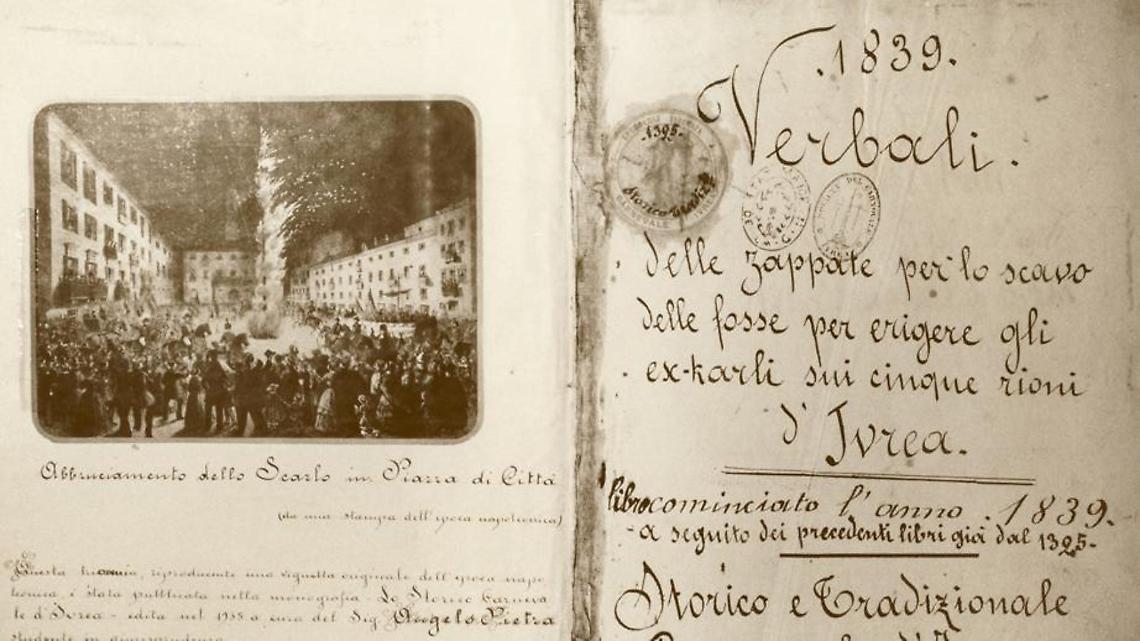 Abbruciamento dello Scarlo in Piazza di Città
(da una stampa dell'epoca napoleonica)
Questa incisione, riproducente una vignetta originale dell'epoca napo
leonica, è stata pubblicata nella monografia - Lo Storico Carneva
le d'Ivrea - edita nel 1935 a cura del Sig. Angelo Pietra
studente in giurisprudenza
.1839.
Verbali.
1395
Storico
delle zappate per lo scavo
delle fosse per erigere gli
ex-karli sui cinque rioni
d'Ivrea.
libro cominciato l'anno .1839.
- a seguito dei precedenti libri già dal 1395-
Storico e Tradizionale